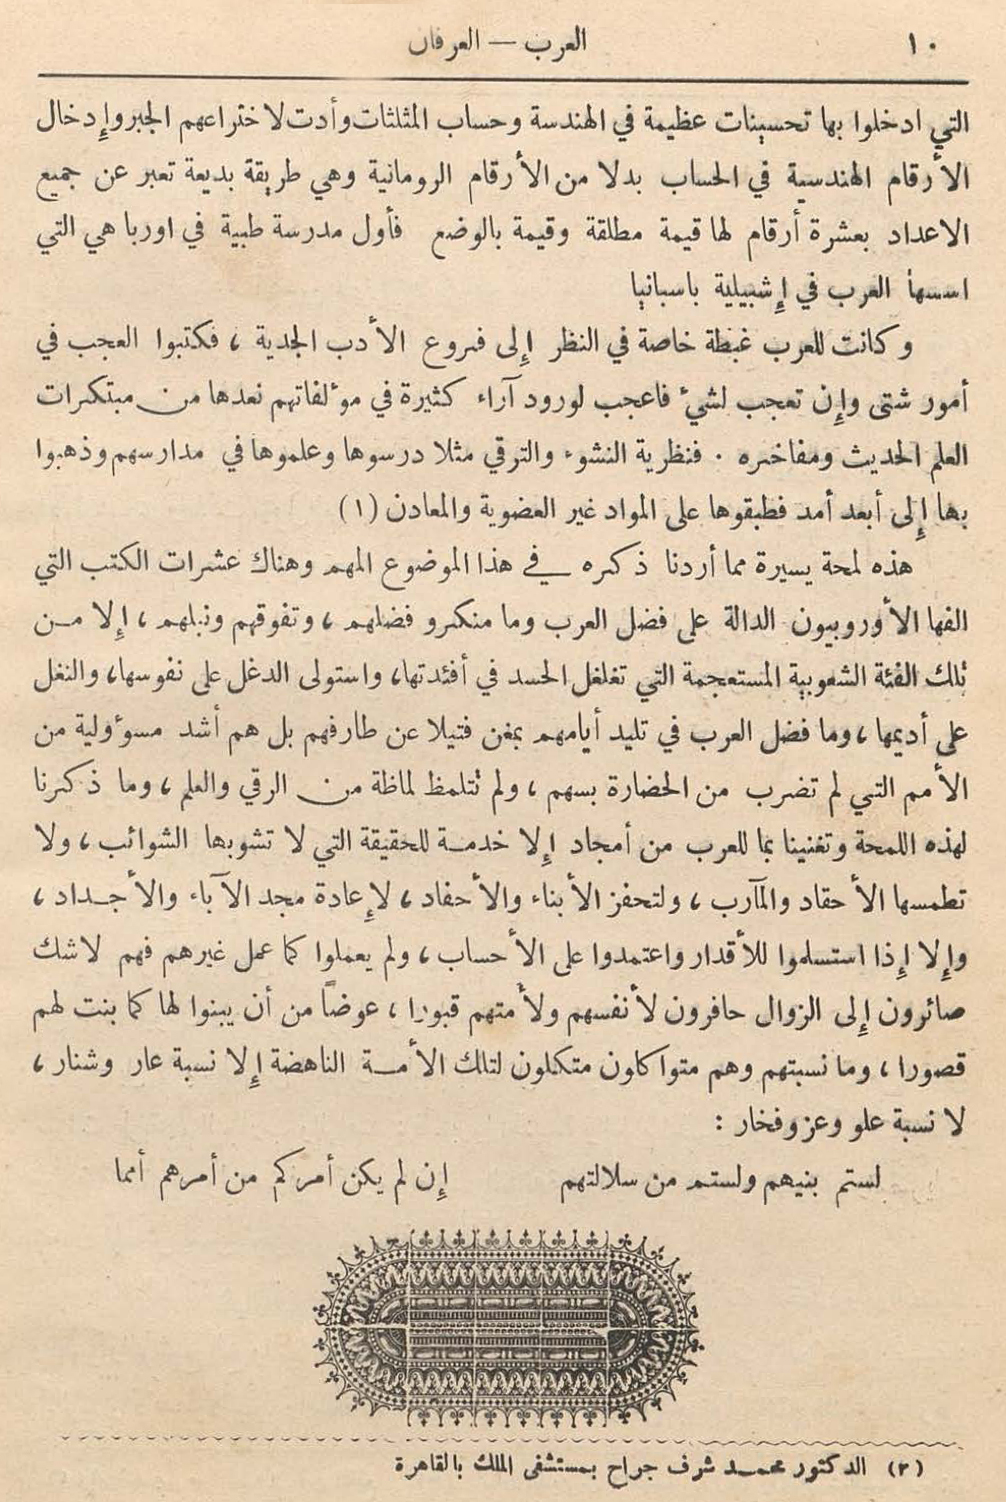 ١٠
العرب — العرفان
التي ادخلوا بها تحسينات عظيمة في الهندسة وحساب المثلثات وأدت لاختراعهم الجبر وإدخال
الأرقام الهندسية في الحساب بدلا من الأرقام الرومانية وهي طريقة بديعة تعبر عن جميع
الاعداد بعشرة أرقام لها قيمة مطلقة وقيمة بالوضع فأول مدرسة طبية في اوربا هي التي
اسسها العرب في إشبيلية باسبانيا
وكانت للعرب غبطة خاصة في النظر إلى فروع الأدب الجدية ، فكتبوا العجب في
أمور شتى وإن تعجب لشيء فاعجب لورود آراء كثيرة في مؤلفاتهم نعدها من مبتكرات
العلم الحديث ومفاخره . فنظرية النشوء والترقي مثلا درسوها وعلموها في مدارسهم وذهبوا
بها إلى أبعد أمد فطبقوها على المواد غير العضوية والمعادن (١)
هذه لمحة يسيرة مما أردنا ذكره في هذا الموضوع المهم وهناك عشرات الكتب التي
الفها الأوروبيون الدالة على فضل العرب وما منكرو فضلهم ، وتفوقهم ونبلهم ، إلا من
تلك الفئة الشعوبية المستعجمة التي تغلغل الحسد في أفئدتها، واستولى الدغل على نفوسها، والنغل
على أديمها ، وما فضل العرب في تليد أيامهم بمغن فتيلا عن طارفهم بل هم أشد مسؤولية من
الأمم التي لم تضرب من الحضارة بسهم ، ولم تتلمظ لماظة من الرقي والعلم ، وما ذكرنا
لهذه اللمحة وتغنينا بما للعرب من أمجاد إلا خدمة للحقيقة التي لا تشوبها الشوائب ، ولا
تطمسها الأحقاد والمآرب ، ولتحفز الأبناء والأحفاد ، لإعادة مجد الآباء والأجداد ،
وإلا إذا استسلموا للأقدار واعتمدوا على الأحساب ، ولم يعملوا كما عمل غيرهم فهم لاشك
صائرون إلى الزوال حافرون لأنفسهم ولأمتهم قبورا ، عوضاً من أن يبنوا لها كما بنت لهم
قصورا ، وما نسبتهم وهم متواكلون متكلون لتلك الأمة الناهضة إلا نسبة عار وشنار ،
لا نسبة علو وعز وفخار :
لستم بنيهم ولستم من سلالتهم إن لم يكن أمركم من أمرهم أمما
(٢) الدكتور محمد شرف جراح بمستشفى الملك بالقاهرة